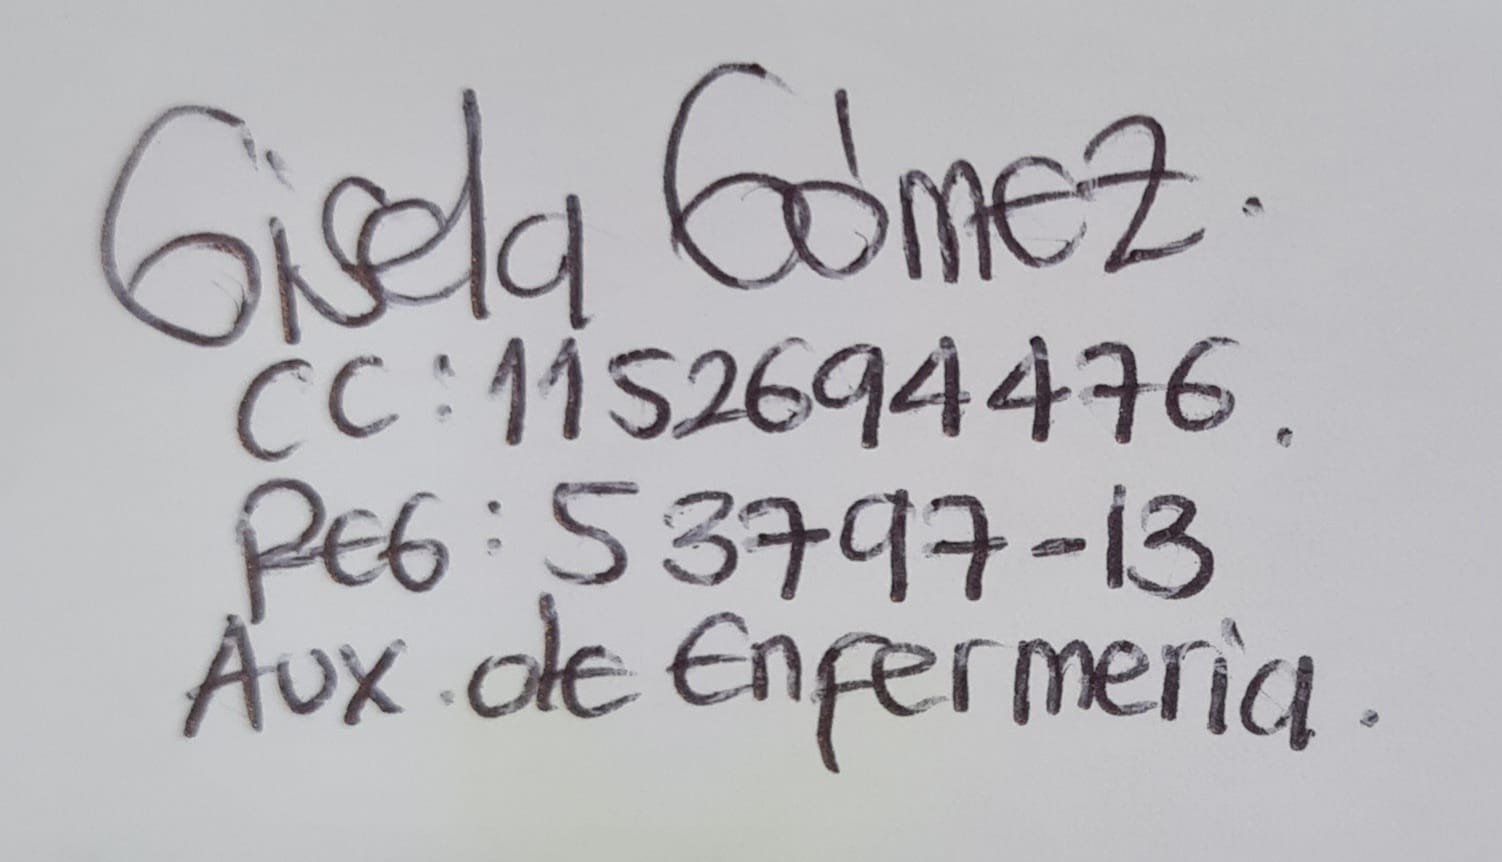 Gisela Gómez.
CC: 1152694476.
REG: 53797-13
Aux. de Enfermería.